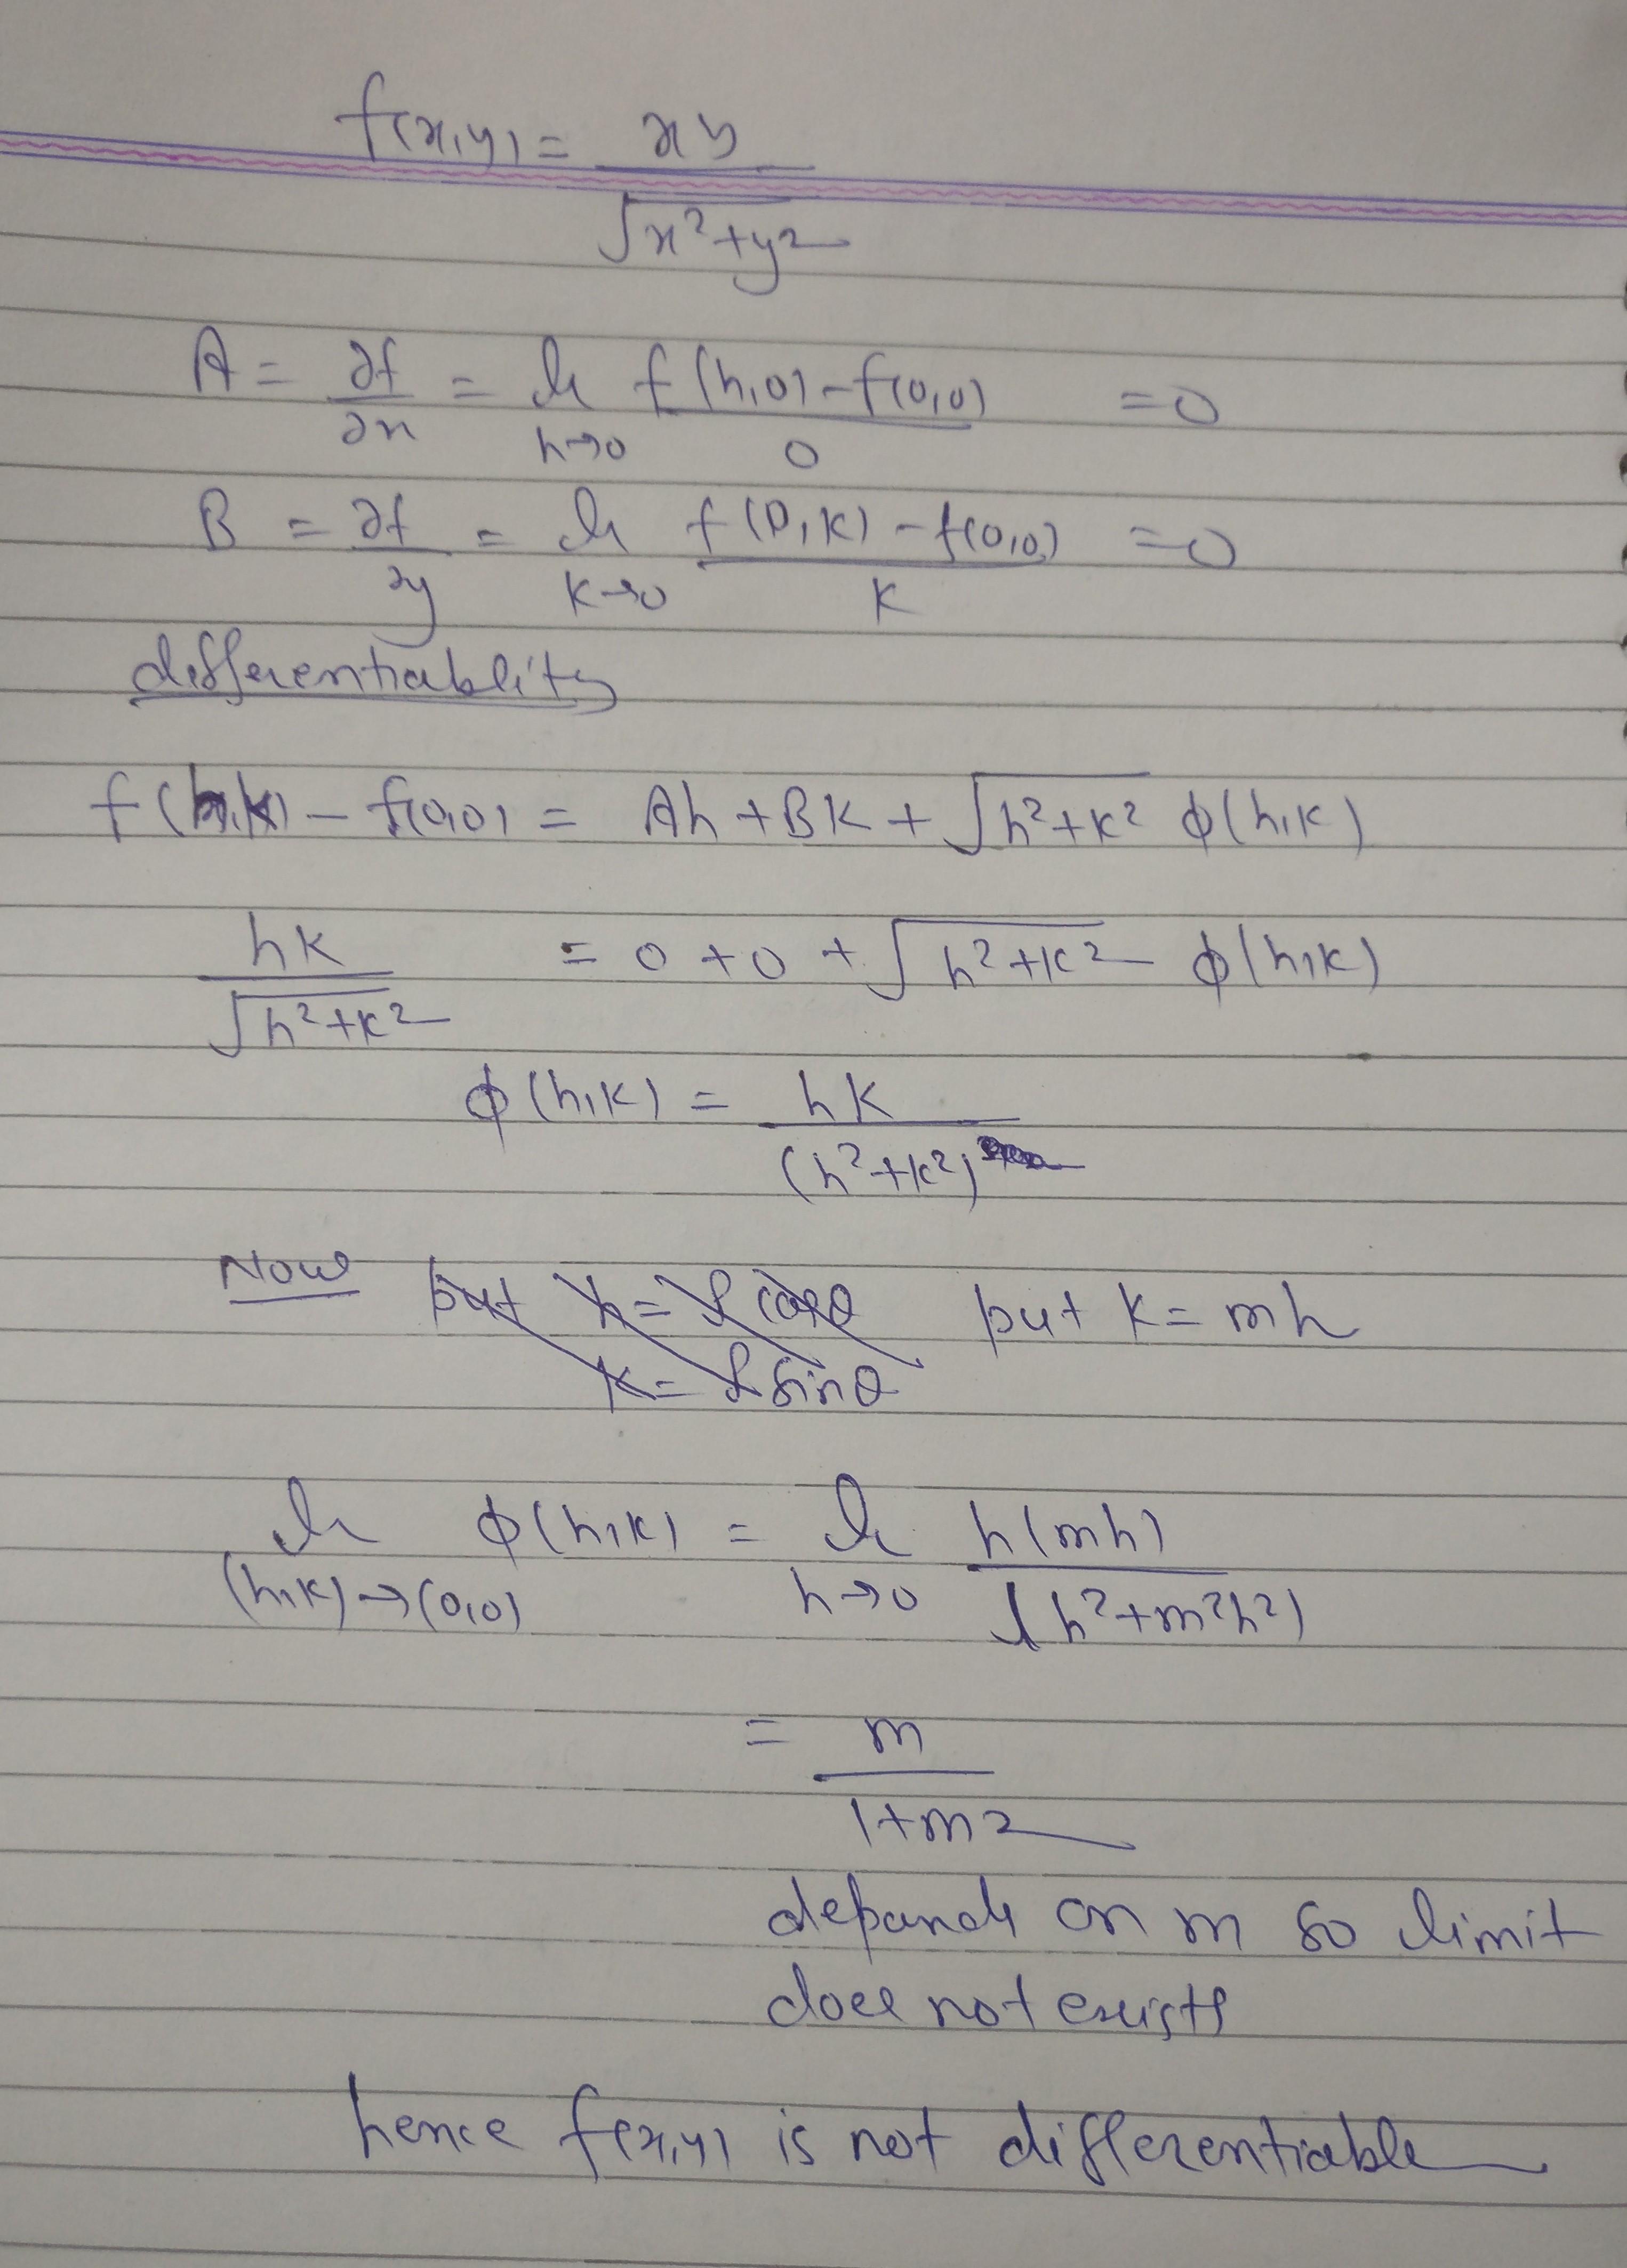 f(x,y) = xy / √x²+y²
A = ∂f/∂x = lt h→0 f(h,0) - f(0,0) / 0 = 0
B = ∂f/∂y = lt k→0 f(0,k) - f(0,0) / k = 0
differentiablity
f(h,k) - f(0,0) = Ah + Bk + √h²+k² φ(h,k)
hk / √h²+k² = 0 + 0 + √h²+k² φ(h,k)
φ(h,k) = hk / (h²+k²)
Now put h = r cosθ put k = mh
k = r sinθ
lt (h,k)→(0,0) φ(h,k) = lt h→0 h(mh) / (h²+m²h²)
= m / 1+m²
depands on m so limit
does not exists
hence f(x,y) is not differentiable